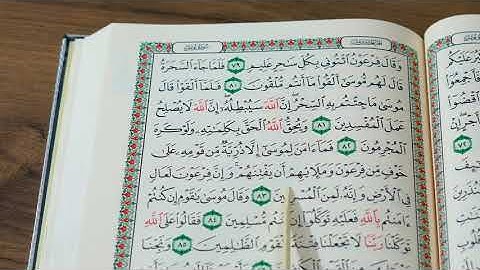 وَقَالَ فِرْعَوْنُ ٱئْتُونِى بِكُلِّ سَـٰحِرٍ عَلِيمٍ ٧٩ فَلَمَّا جَآءَ ٱلسَّحَرَةُ
قَالَ لَهُم مُّوسَىٰٓ أَلْقُوا۟ مَآ أَنتُم مُّلْقُونَ ٨٠ فَلَمَّآ أَلْقَوْا۟ قَالَ
مُوسَىٰ مَا جِئْتُم بِهِ ٱلسِّحْرُ إِنَّ ٱللَّهَ سَيُبْطِلُهُۥٓ إِنَّ ٱللَّهَ لَا يُصْلِحُ
عَمَلَ ٱلْمُفْسِدِينَ ٨١ وَيُحِقُّ ٱللَّهُ ٱلْحَقَّ بِكَلِمَـٰتِهِۦ وَلَوْ كَرِهَ
ٱلْمُجْرِمُونَ ٨٢ فَمَآ ءَامَنَ لِمُوسَىٰٓ إِلَّا ذُرِّيَّةٌ مِّن قَوْمِهِۦ عَلَىٰ
خَوْفٍ مِّن فِرْعَوْنَ وَمَلَإِي۟هِمْ أَن يَفْتِنَهُمْ وَإِنَّ فِرْعَوْنَ لَعَالٍ
فِى ٱلْأَرْضِ وَإِنَّهُۥ لَمِنَ ٱلْمُسْرِفِينَ ٨٣ وَقَالَ مُوسَىٰ يَـٰقَوْمِ إِن كُنتُمْ
ءَامَنتُم بِٱللَّهِ فَعَلَيْهِ تَوَكَّلُوٓا۟ إِن كُنتُم مُّسْلِمِينَ ٨٤ فَقَالُوا۟ عَلَى ٱللَّهِ
تَوَكَّلْنَا رَبَّنَا لَا تَجْعَلْنَا فِتْنَةً لِّلْقَوْمِ ٱلظَّـٰلِمِينَ ٨٥ وَنَجِّنَا